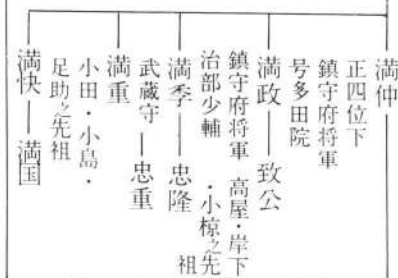 満仲
正四位下
鎮守府将軍
号多田院
満政―致公
鎮守府将軍 高屋・岸下
治部少輔 ・小椋之先祖
満季―忠隆
武蔵守―忠重
満重
小田・小島・
足助之先祖
満快―満国